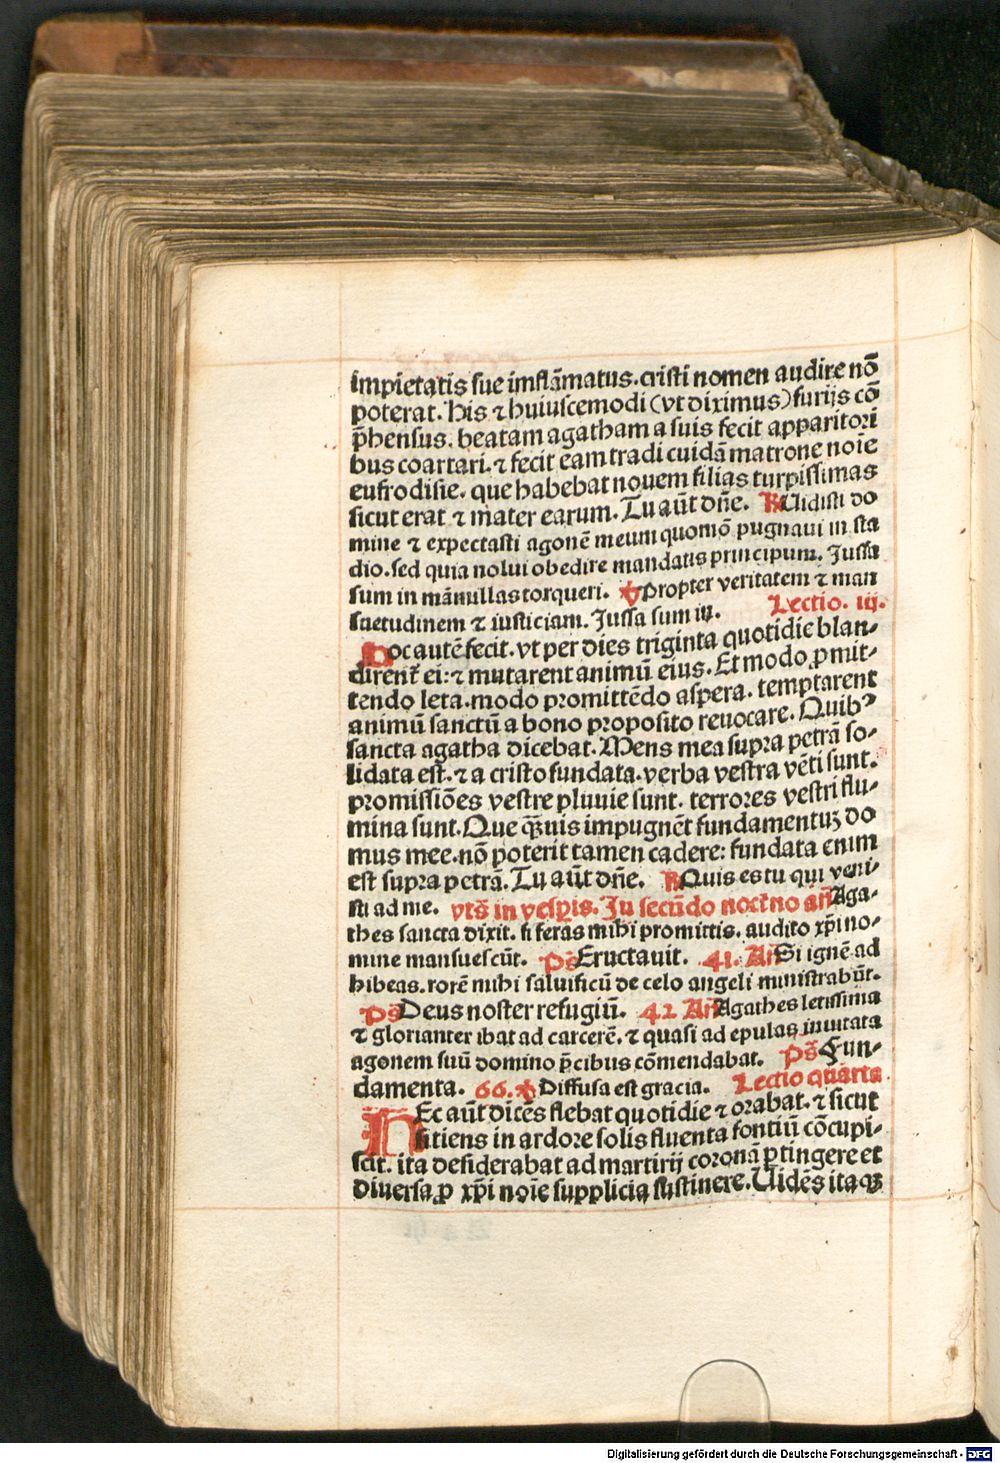 impietatis sue inflāmatus. cristi nomen audire nō
poterat. his ⁊ huiuscemodi (vt diximus) furijs cō
p̄hensus. beatam agatham a suis fecit apparitori
bus coartari. ⁊ fecit eam tradi cuidā matrone noīe
eufrodisie. que habebat nouem filias turpissimas
sicut erat ⁊ mater earum. Tu aūt dn̄e. ℟ Uidisti do
mine ⁊ expectasti agonē meum quomō pugnaui in sta
dio. sed quia nolui obedire mandatis principum. Jussa
sum in māmillas torqueri. ℣ Propter veritatem ⁊ man
suetudinem ⁊ iusticiam. Jussa sum in. Lectio. iij.
Hoc autē fecit. vt per dies triginta quotidie blan-
dirent̄ ei: ⁊ mutarent animū eius. Et modo ꝓmit-
tendo leta. modo promittēdo aspera. temptarent
animū sanctū a bono proposito reuocare. Quibꝰ
sancta agatha dicebat. Mens mea supra petrā so-
lidata est. ⁊ a cristo fundata. verba vestra vēti sunt.
promissiōes vestre pluuie sunt. terrores vestri flu-
mina sunt. Que q̄uis impugnēt fundamentuꝫ do
mus mee. nō poterit tamen cadere: fundata enim
est supra petrā. Tu aūt dn̄e. ℟ Quis es tu qui veni-
sti ad me. vts̄ in vesꝑis. Ju secūdo noct̄no an̄ Aga-
thes sancta dixit. si feras mihi promittis. audito xp̄i no-
mine mansuescūt. Ps̄ Eructauit. 41. An̄ Si ignē ad
hibeas. rorē mihi saluificū de celo angeli ministrabūt.
Ps̄ Deus noster refugiū. 42 An̄ Agathes letissima
⁊ glorianter ibat ad carcerē. ⁊ quasi ad epulas inuitata
agonem suū domino p̄cibus cōmendabat. Ps̄ Fun-
damenta. 66. ℣ Diffusa est gracia. Lectio quarta
Hec aūt dicēs flebat quotidie ⁊ orabat. ⁊ sicut
sitiens in ardore solis fluenta fontiū cōcupi-
scit. ita desiderabat ad martirij coronā ꝑtingere et
diuersa ꝓ xp̄i noīe supplicia sustinere. Uidēs itaqꝫ
Digitalisierung gefördert durch die Deutsche Forschungsgemeinschaft - DFG